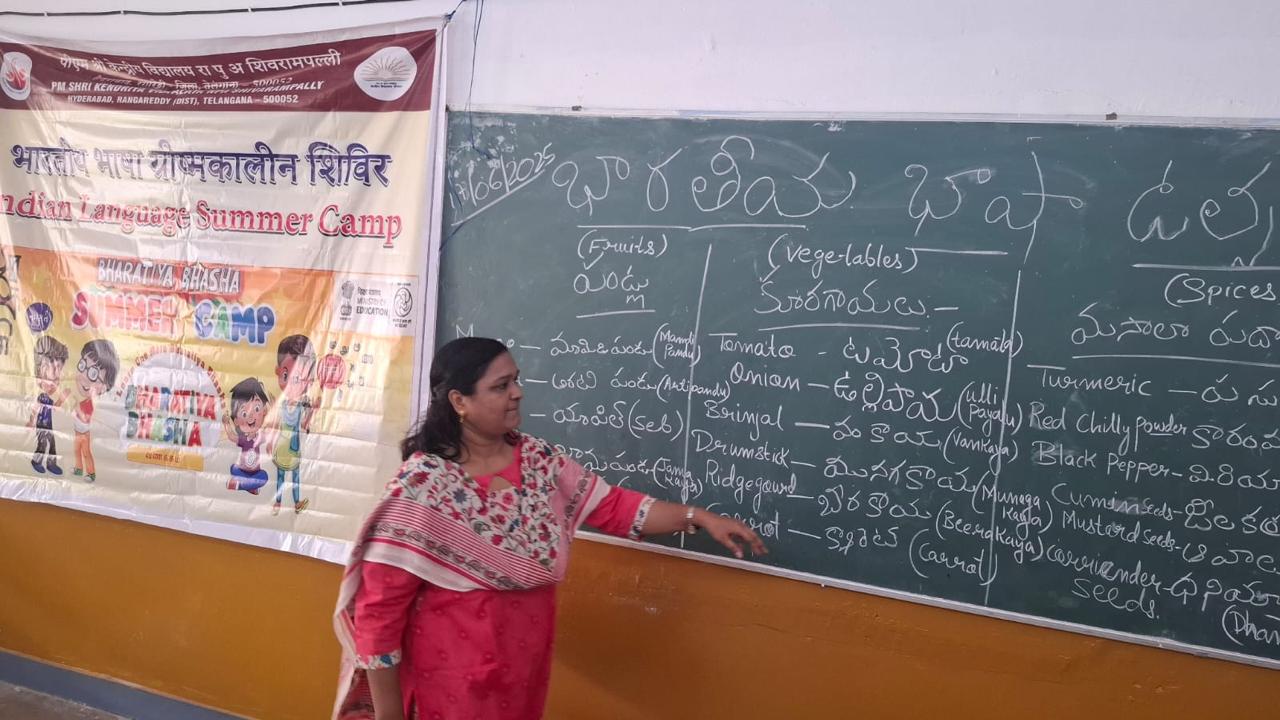 पीएम श्री केन्द्रीय विद्यालय रा पु अ शिवरामपल्ली
जिला, तेलंगाना - 500052
PM SHRI KENDRIYA VIDYALAYA NPA SHIVARAMPALLY
HYDERABAD, RANGAREDDY (DIST), TELANGANA - 500052
भारतीय भाषा ग्रीष्मकालीन शिविर
Indian Language Summer Camp
BHARATIYA BHASHA
SUMMER CAMP
MINISTRY OF
EDUCATION
BHARATIYA
BHASHA
/06/2025
భారతీయ భాషా ఉత్స
(Fruits)
పండ్లు
మామిడిపండు (Mamdi Pandu)
అరటి పండు (Arti pandu)
యాపిల్ (Seb)
(Vegetables)
కూరగాయలు -
Tomato - టమోటా (tamata)
Onion - ఉల్లిపాయ (ulli Payalu)
Brinjal - వంకాయ (Vankaya)
Drumstick - మునగకాయ (Munaga Kaya)
Ridgegourd - బీరకాయ (Beerakaya)
Carrot - క్యారెట్ (Carrot)
(Spices
మసాలా పదా
Turmeric - పసు
Red Chilly Powder కారం
Black Pepper - మిరియా
Cumin Seeds - జీలకర
Mustard Seeds - ఆవాల
Corriender Seeds. - ధనియా
(Dhan